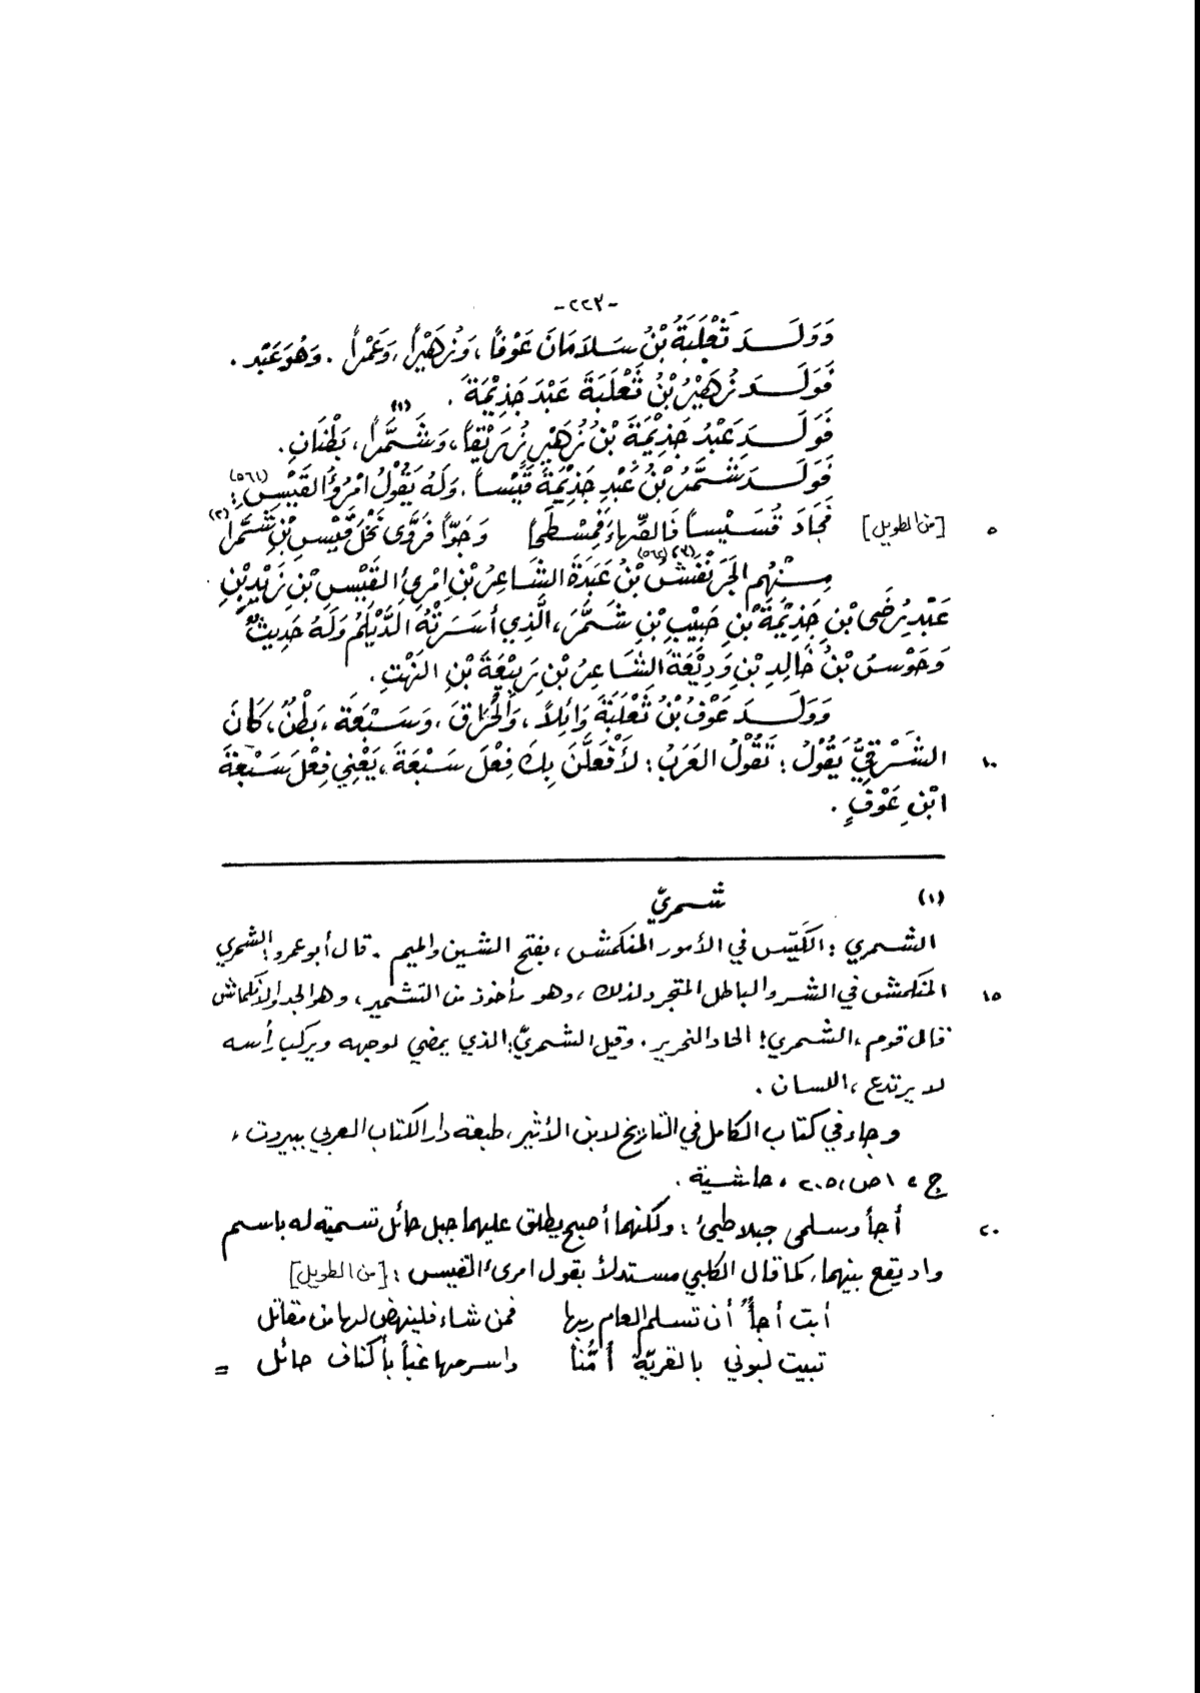 -٢٢٣-
وَوَلَـــدَ ثَعْلَبَةُ بْنُ سَلاَمَانَ عَوْفاً ، وَزُهَيْراً ، وَعَمْراً . وَهُوَ عَبْد .
فَوَلَـــدَ زُهَيْرُ بْنُ ثَعْلَبَةَ عَبْدَ جَذِيْمَةَ .
فَوَلَـــدَ عَبْدُ جَذِيْمَةَ بْنُ زُهَيْرٍ زُرَيْقاً ، وَشَمَّراً(١) ، بَطْنَانِ .
فَوَلَـــدَ شَمَّرُ بْنُ عَبْدِ جَذِيْمَةَ قَيْساً . وَلَهُ يَقُوْلُ امْرُؤُ القَيْسِ(٥٦١) :
٥ [من الطويل] فَجَادَ قُسَيْساً فَالصِّهَاءَ فَمِسْطَحاً وَجَوّاً فَرَوَّى نَخْلَ قَيْسِ بْنِ شَمَّرا(٢)
مِـــنْهُم الجَرَنْفَشُ(٣)(٥٦٢) بْنُ عَبَدَةَ الشَّاعِرُ بْنِ امْرِئِ القَيْسِ بْنِ زَيْدِ بْنِ
عَبْدِ رُضَى بْنِ جَذِيْمَةَ بْنِ حَبِيْبِ بْنِ شَمَّرَ ، الَّذِي أَسَرَتْهُ الدَّيْلَمُ وَلَهُ حَدِيثٌ
وَحَوْسُ بْنُ خَالِدِ بْنِ وَدِيْعَةَ الشَّاعِرُ بْنِ رَبِيْعَةَ بْنِ النَهْتِ .
وَوَلَـــدَ عَوْفُ بْنُ ثَعْلَبَةَ وَائِلاً ، وَالحُرَاقَ ، وَسَبْعَةَ ، بَطْنٌ ، كَانَ
١٠ الشَّرْقِيُّ يَقُوْلُ : تَقُوْلُ العَرَبُ : لأَفْعَلَنَّ بِكَ فِعْلَ سَبْعَةَ ، يَعْنِي فِعْلَ سَبْعَةَ
ابْنِ عَوْفٍ .
(١) شـمريّ
الشـمري : الكَيّس في الأمور المنكمش ، بفتح الشين والميم . قال أبو عمرو : الشمري
١٥ المنكمش في الشر والباطل المتجرد لذلك ، وهو مأخوذ من التشمير ، وهو الجد والانكماش
قال قوم ، الشمري : الحاد النحرير . وقيل الشمريّ : الذي يمضي لوجهه ويركب رأسه
لا يرتدع ، اللسان .
وجاء في كتاب الكامل في التاريخ لابن الأثير ، طبعة دار الكتاب العربي ببيروت ،
ج ، ١ ص ، ٢٠٥ ، حاشية .
٢٠ أجأ وسلمى جبلا طيئ : ولكنهما أصبح يطلق عليهما جبل حائل تسمية له باسم
واد يقع بينهما ، كما قال الكلبي مستدلاً بقول امرئ القيس : [من الطويل]
أبت أجأٌ أن تسلم العام ربها فمن شاء فلينهض لها من مقاتل
تبيت لبوني بالقريّة أُمَّناً واسرحها غباً بأكناف حائل =